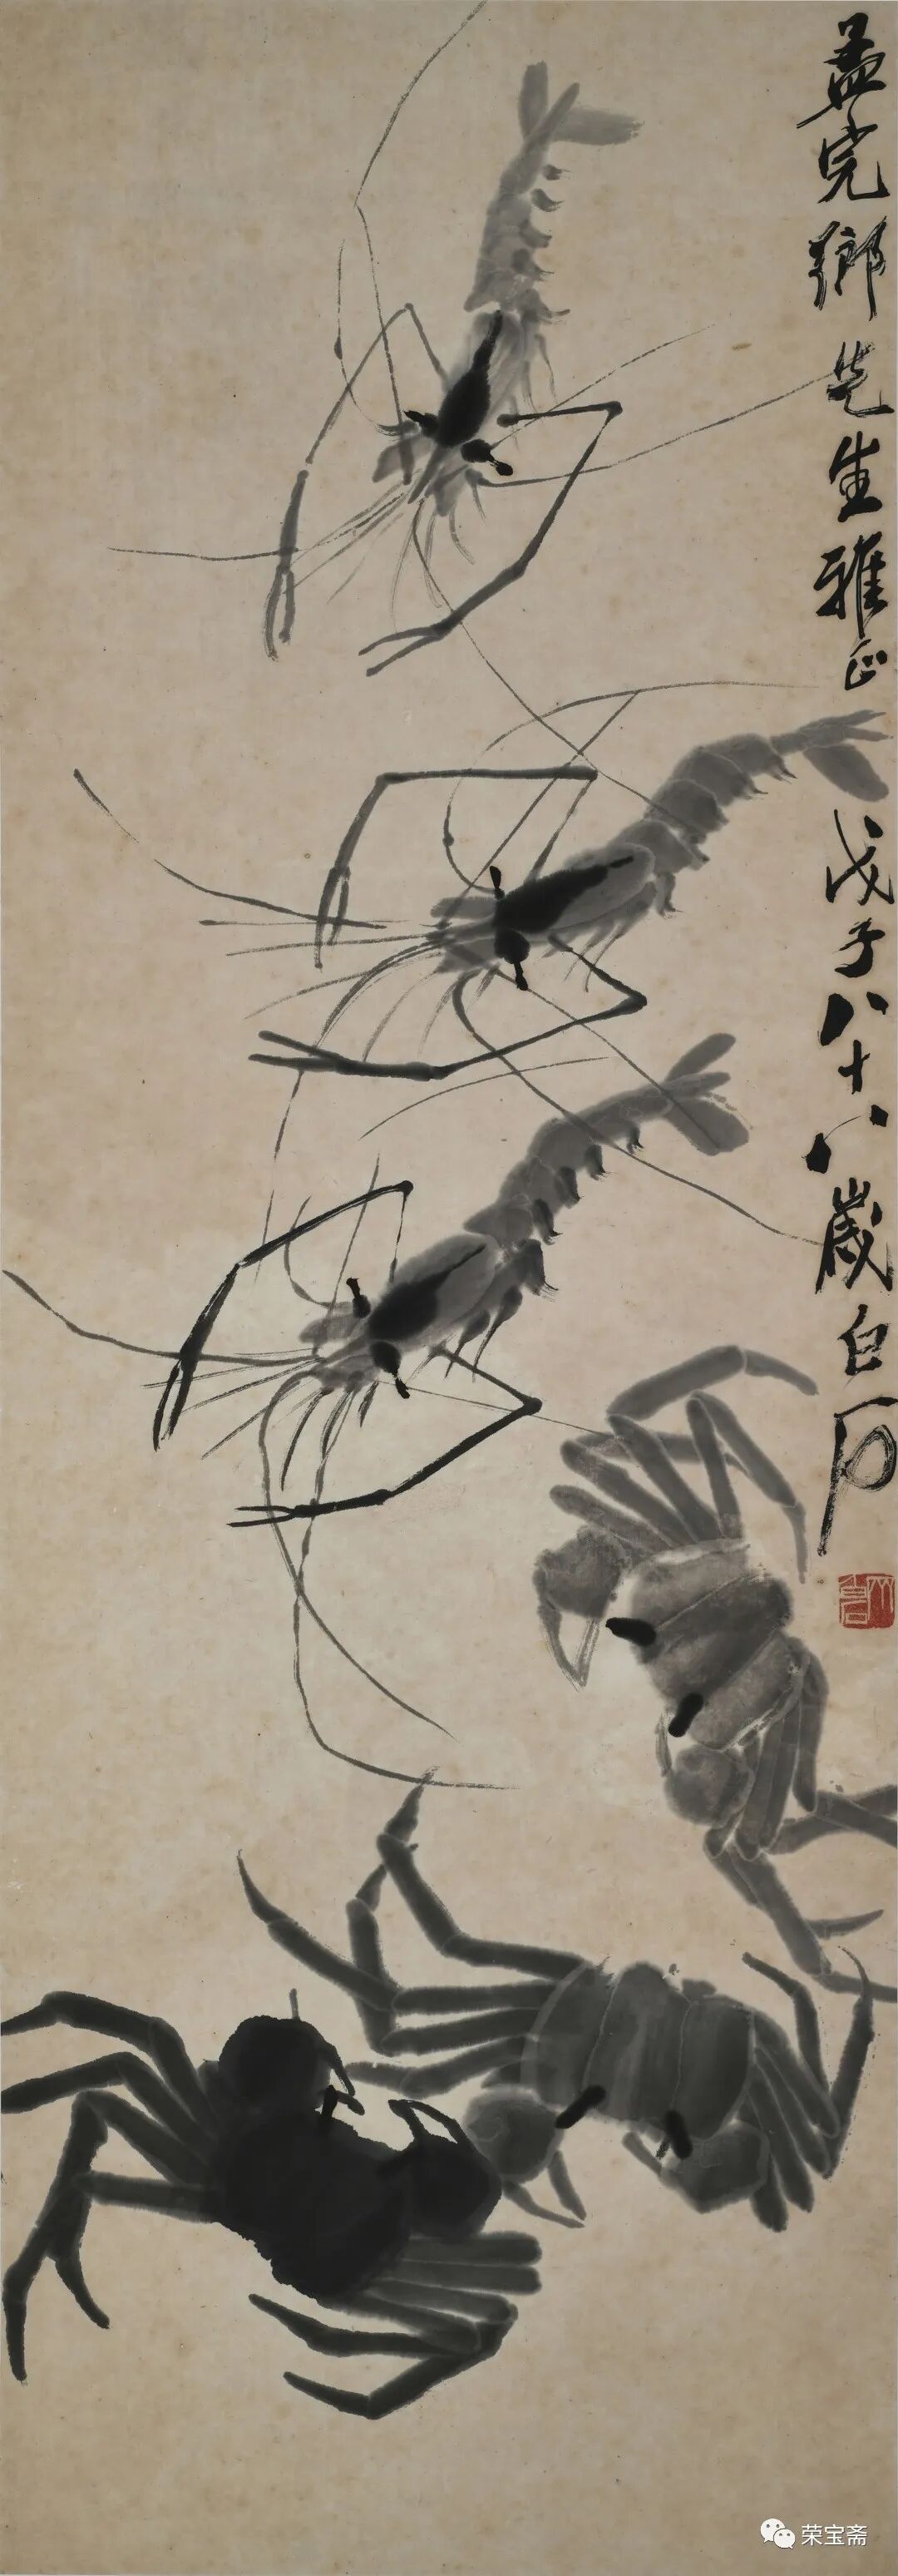 孟完鄉先生雅正 戊子八十八歲白石
荣宝斋